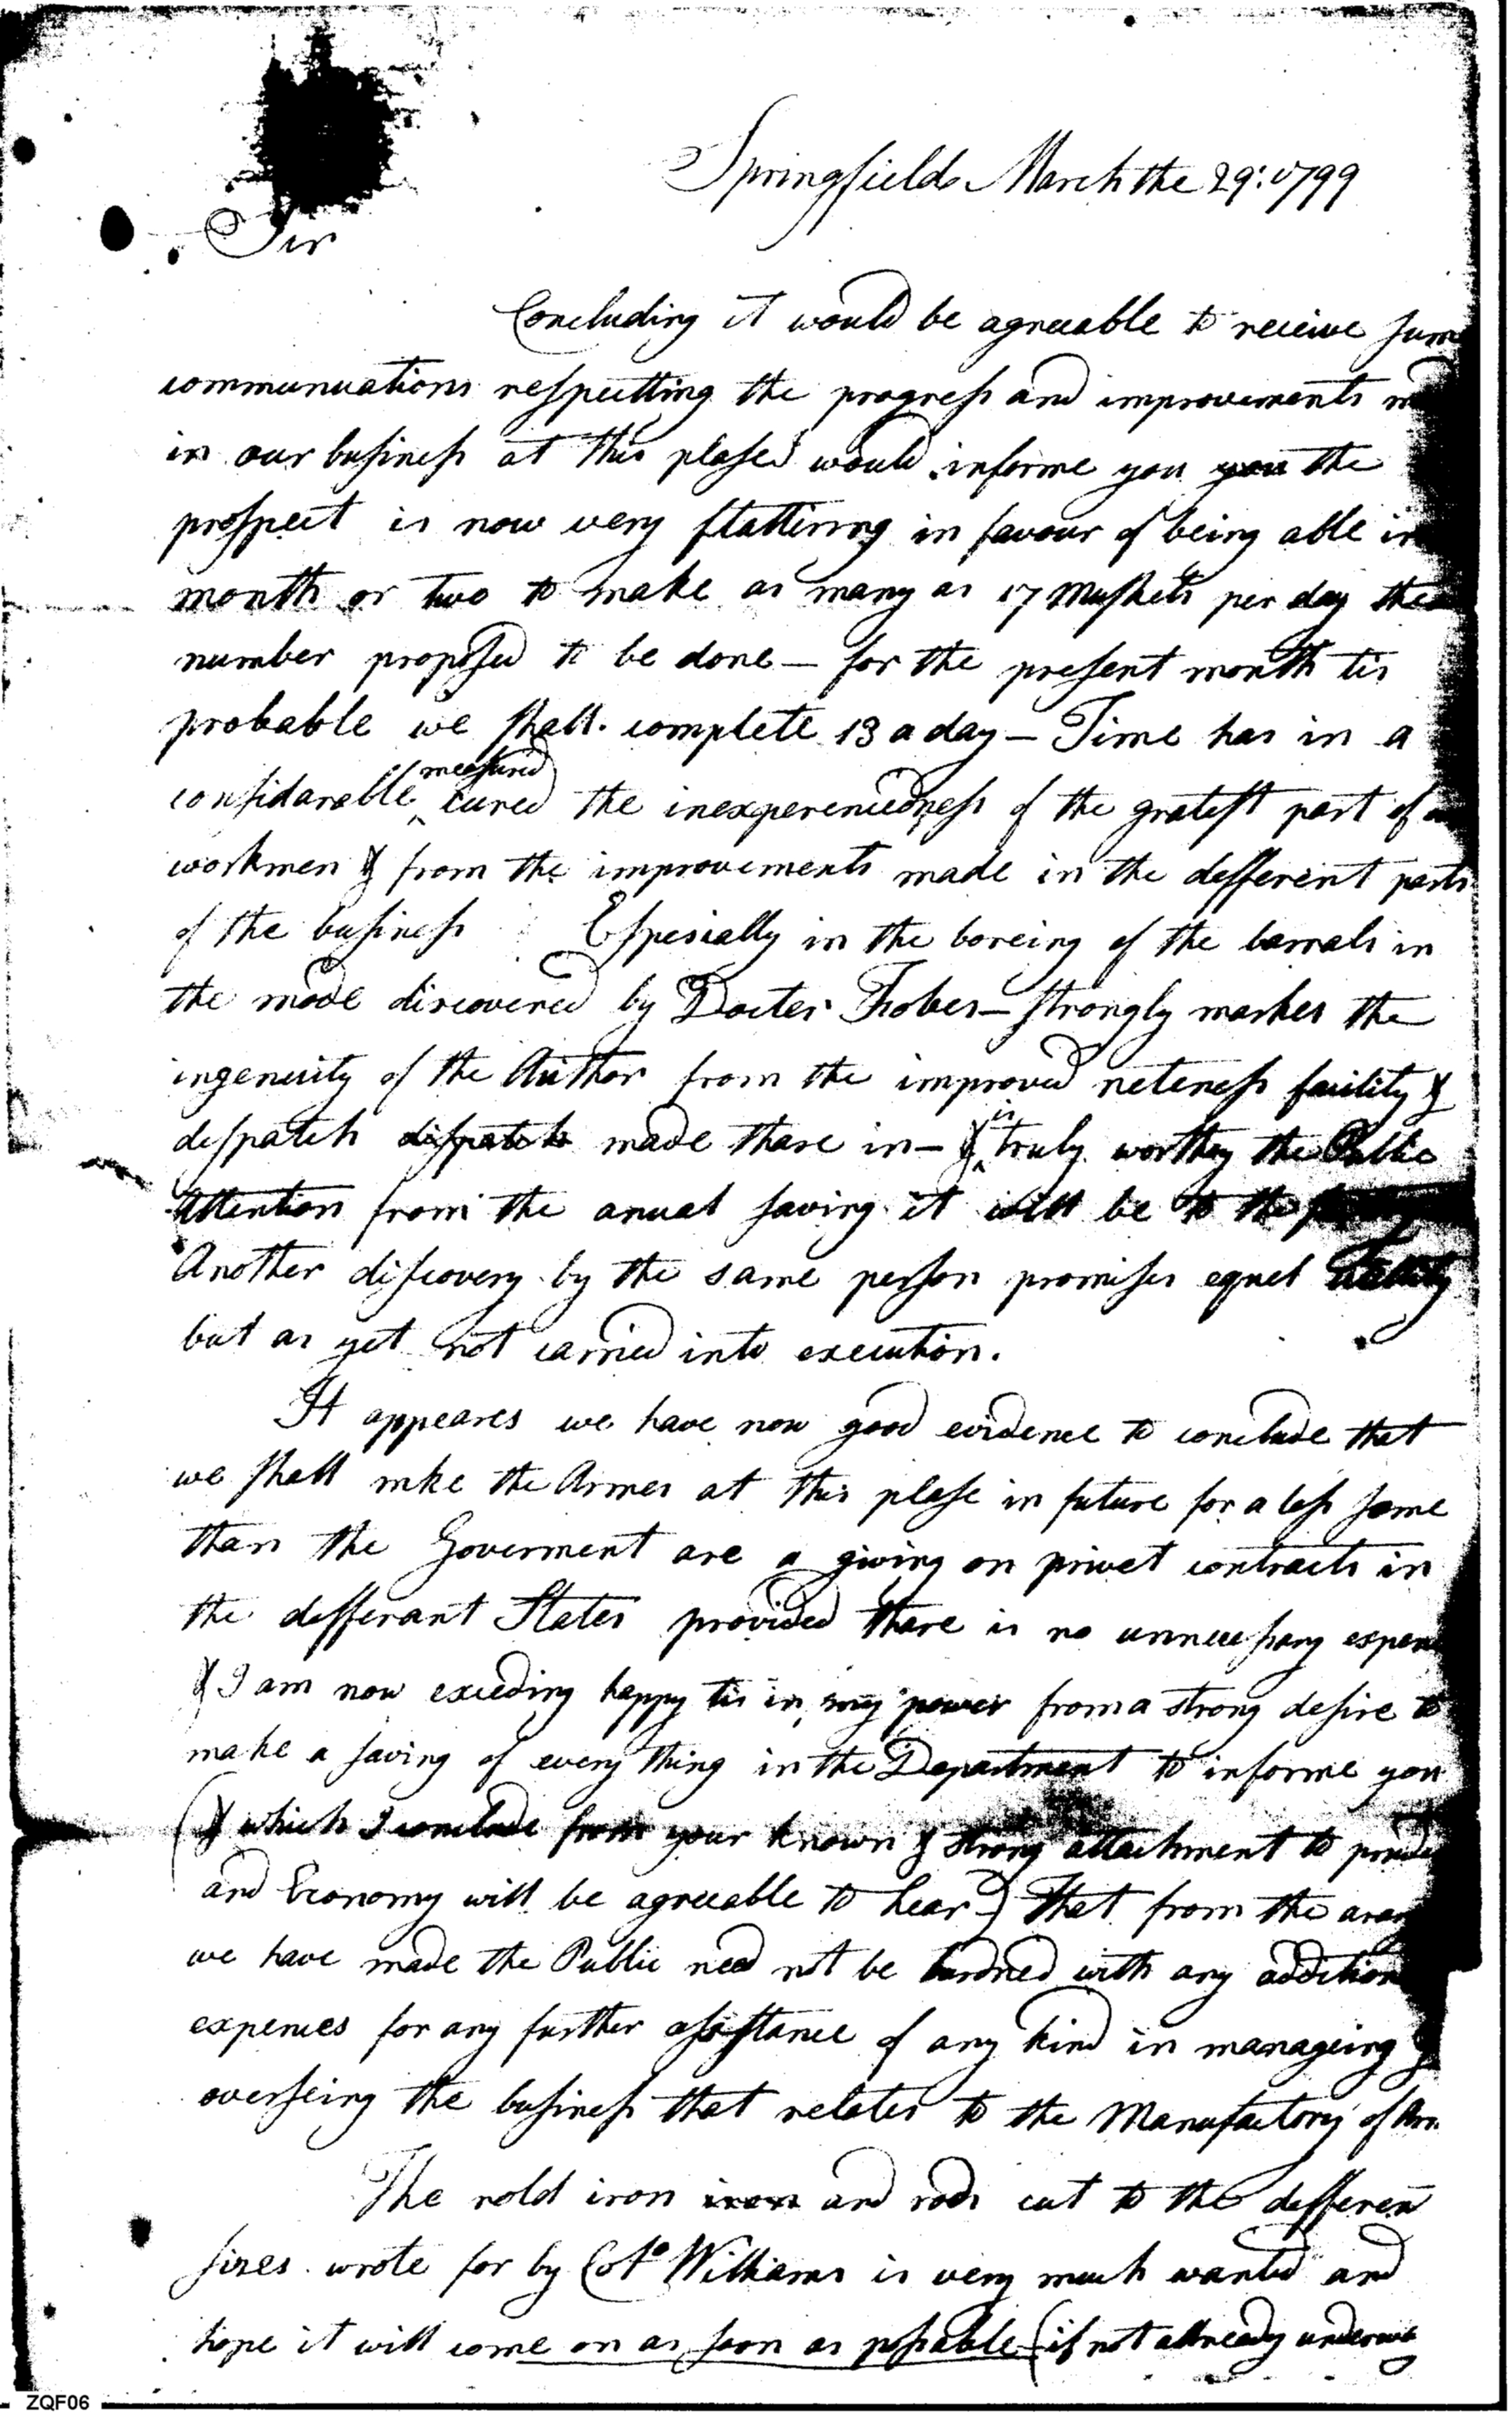 Springfield March the 29: 1799
Sir
Concluding it would be agreeable to receive sum
communications respectting the progress and improvements
in our business at this plase would informe you you the
prospect is now very flattering in favour of being able in
month or two to make as many as 17 Muskets per day the
number proposed to be done — for the present month tis
probable we shall complete 13 a day — Time has in a
measured
considarable cured the inexperencedness of the gratest part of
workmen & from the improvements made in the different parts
of the business Espesially in the boreing of the barrals in
the mode discovered by Docter Fobes — strongly markes the
ingenuity of the Author from the improved neteness facility &
in
despatch dispatch made thare in — & truly worthey the Public
Attention from the anual saving it will be to the
Another discovery by the same person promises equel utility
but as yet not carried into execution.
It appeares we have now good evidence to conclude that
we shall mke the Armes at this plase in future for a less some
than the Goverment are a giving on privet contracts in
the defferant States provided thare is no unnecessary expen
& I am now exceding happy tis in my power from a strong desire to
make a saving of every thing in the Department to informe you
(& which I conclude from your known & strong attachment to
and Economy will be agreeable to hear) That from the
we have made the Public need not be burdned with any addition
expences for any further assistance of any kind in manageing &
overseing the business that relates to the Manufactory of Arm
The rold iron iron and rods cut to the differen
sizes wrote for by Colo Williams is very much wanted and
hope it will come on as soon as possable (if not allready underway
ZQF06